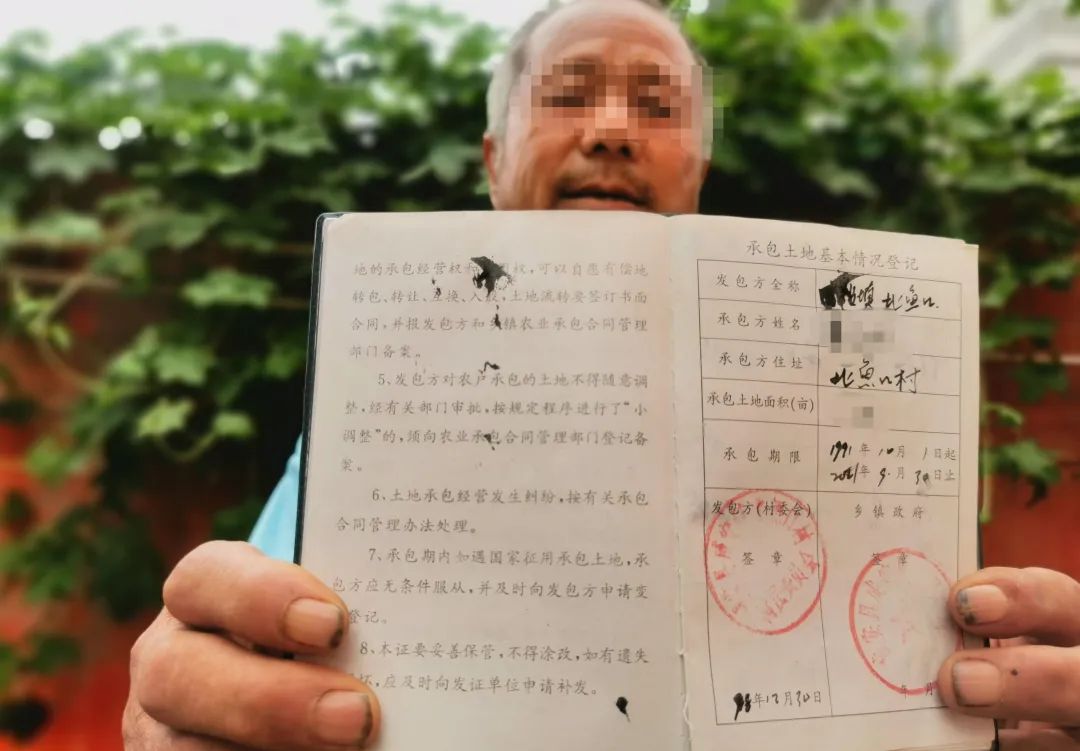 地的承包经营权和 权，可以自愿有偿地
转包、转让、互换、入股，土地流转要签订书面
合同，并报发包方和乡镇农业承包合同管理
部门备案。
5、发包方对农户承包的土地不得随意调
整，经有关部门审批，按规定程序进行了“小
调整”的，须向农业承包合同管理部门登记备
案。
6、土地承包经营发生纠纷，按有关承包
合同管理办法处理。
7、承包期内如遇国家征用承包土地，承
包方应无条件服从，并及时向发包方申请变
登记。
8、本证要妥善保管，不得涂改，如有遗失
坏，应及时向发证单位申请补发。
承包土地基本情况登记
发包方全称 镇北鱼口
承包方姓名
承包方住址 北鱼口村
承包土地面积(亩)
承包期限 1991年10月1日起
2021年9月30日止
发包方(村委会) 乡镇政府
签章 签章
年12月30日 年 月